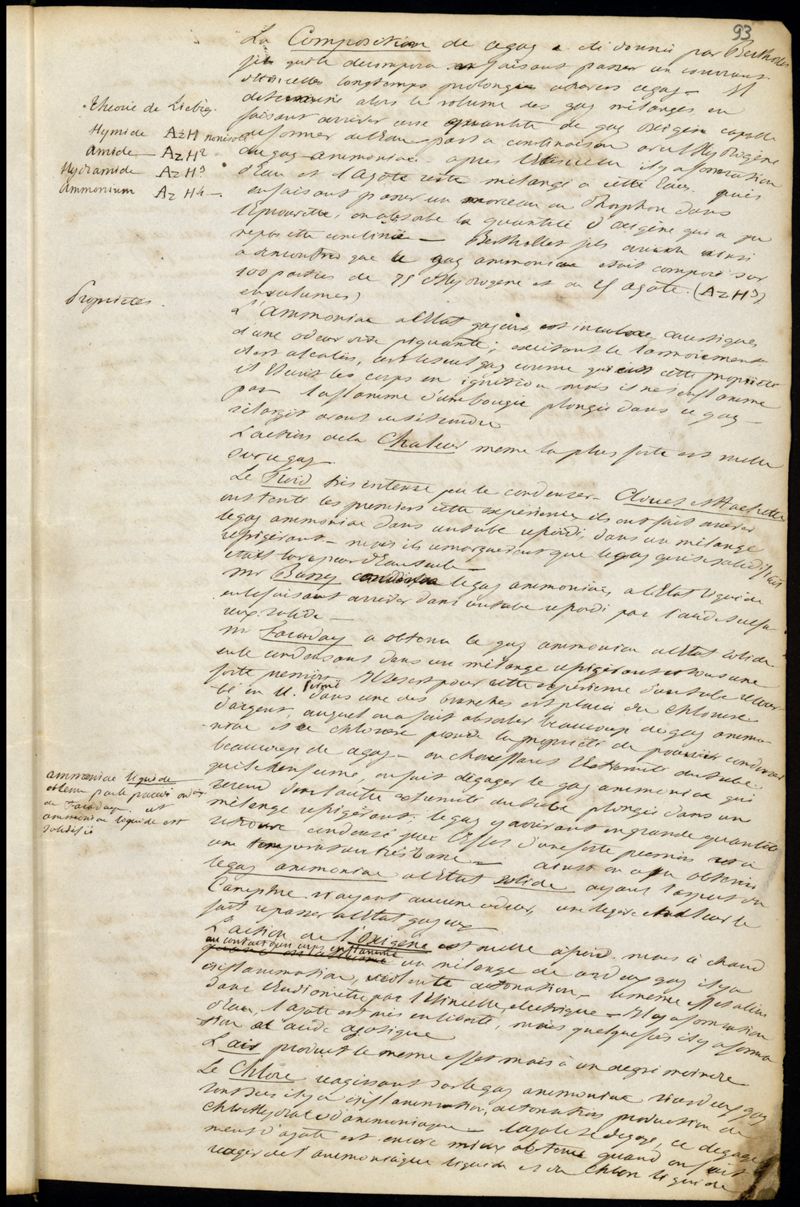 93
La Composition de ce gaz a été donnée par Berthollet
fils qui le décomposa en faisant passer un courant
d'étincelles longtemps prolongé à travers ce gaz — Il
détermine alors le volume des gaz mélangés en
faisant arriver une quantité de gaz oxigène capable
de former de l'Eau par sa combinaison avec l'Hydrogène
du gaz ammoniac. après l'étincelle il y a formation
d'Eau et l'Azote reste mélangé à cette Eau, puis
en faisant passer un morceau de Phosphore dans
l'Eprouvette, on absorbe la quantité d'oxigène qui a pu
rester non combinée — Berthollet fils avait ainsi
démontré que le gaz ammoniac était composé sur
100 parties de 75 Hydrogène et de 25 azote. (AzH3)
en volumes)
Théorie de Liebig.
Hymide AzH
amide — AzH2
Hydramide AzH3
ammonium AzH4 —
Propriétés.
L'Ammoniac à l'Etat gazeux est incolore, caustique,
d'une odeur vive piquante, excitant le larmoiement
il est alcalin, c'est le seul gaz connu qui ait cette propriété
il éteint les corps en ignition mais il ne s'enflamme
pas. la flamme d'une bougie plongée dans ce gaz —
s'élargit avant de s'éteindre
L'action de la Chaleur même la plus forte est nulle
sur ce gaz
Le Froid très intense peut le condenser — Clouet et Hachette
ont tenté les premiers cette expérience ils ont fait arriver
le gaz ammoniac dans un tube refroidi dans un mélange
réfrigérant — mais ils
était la vapeur d'Eau seule —
Mr Bussy condensa le gaz ammoniac à l'Etat liquide
en le faisant arriver dans un tube refroidi par l'acide sulfu-
reux solide —
Mr Faraday a obtenu le gaz ammoniac à l'Etat solide
en le condensant dans un mélange réfrigérant et sous une
forte pression. Il se sert pour cette expérience d'un tube recour-
bé en U. fermé dans une des branches est placé du chlorure
d'argent, auquel on a fait absorber beaucoup de gaz ammo-
niac et ce chlorure possède la propriété de pouvoir condenser
beaucoup de ce gaz — en chauffant l'Extrémité du tube
qui le renferme, on fait dégager le gaz ammoniac qui
se rend dans l'autre extrémité du tube plongée dans un
mélange réfrigérant. le gaz y arrivant en grande quantité
se trouve condensé par l'Effet d'une forte pression et à
une température très basse — ainsi on a pu obtenir
le gaz ammoniac à l'Etat solide ayant l'aspect du
Camphre n'ayant aucune odeur, une légère chaleur le
fait repasser à l'Etat gazeux
ammoniac liquide
obtenu par le procédé
de Faraday, et
ammoniac liquide est
solidifié
L'action de l'Oxigène est nulle à froid. mais à chaud
au contact d'un corps enflammé un mélange de ces deux gaz il y a
inflammation, violente détonation — le même effet a lieu
dans l'Eudiomètre par l'étincelle électrique — Il y a formation
d'Eau, l'azote est mis en liberté, mais quelquefois il y a forma-
tion d'acide azotique
L'air produit le même effet mais à un degré moindre
Le Chlore réagissant sur le gaz ammoniac
inflammation, détonation, production de
Chlorhydrate d'ammoniaque — l'azote se dégage, ce dégage-
ment d'azote est encore mieux obtenu quand on fait
réagir de l'ammoniaque liquide et du Chlore liquide